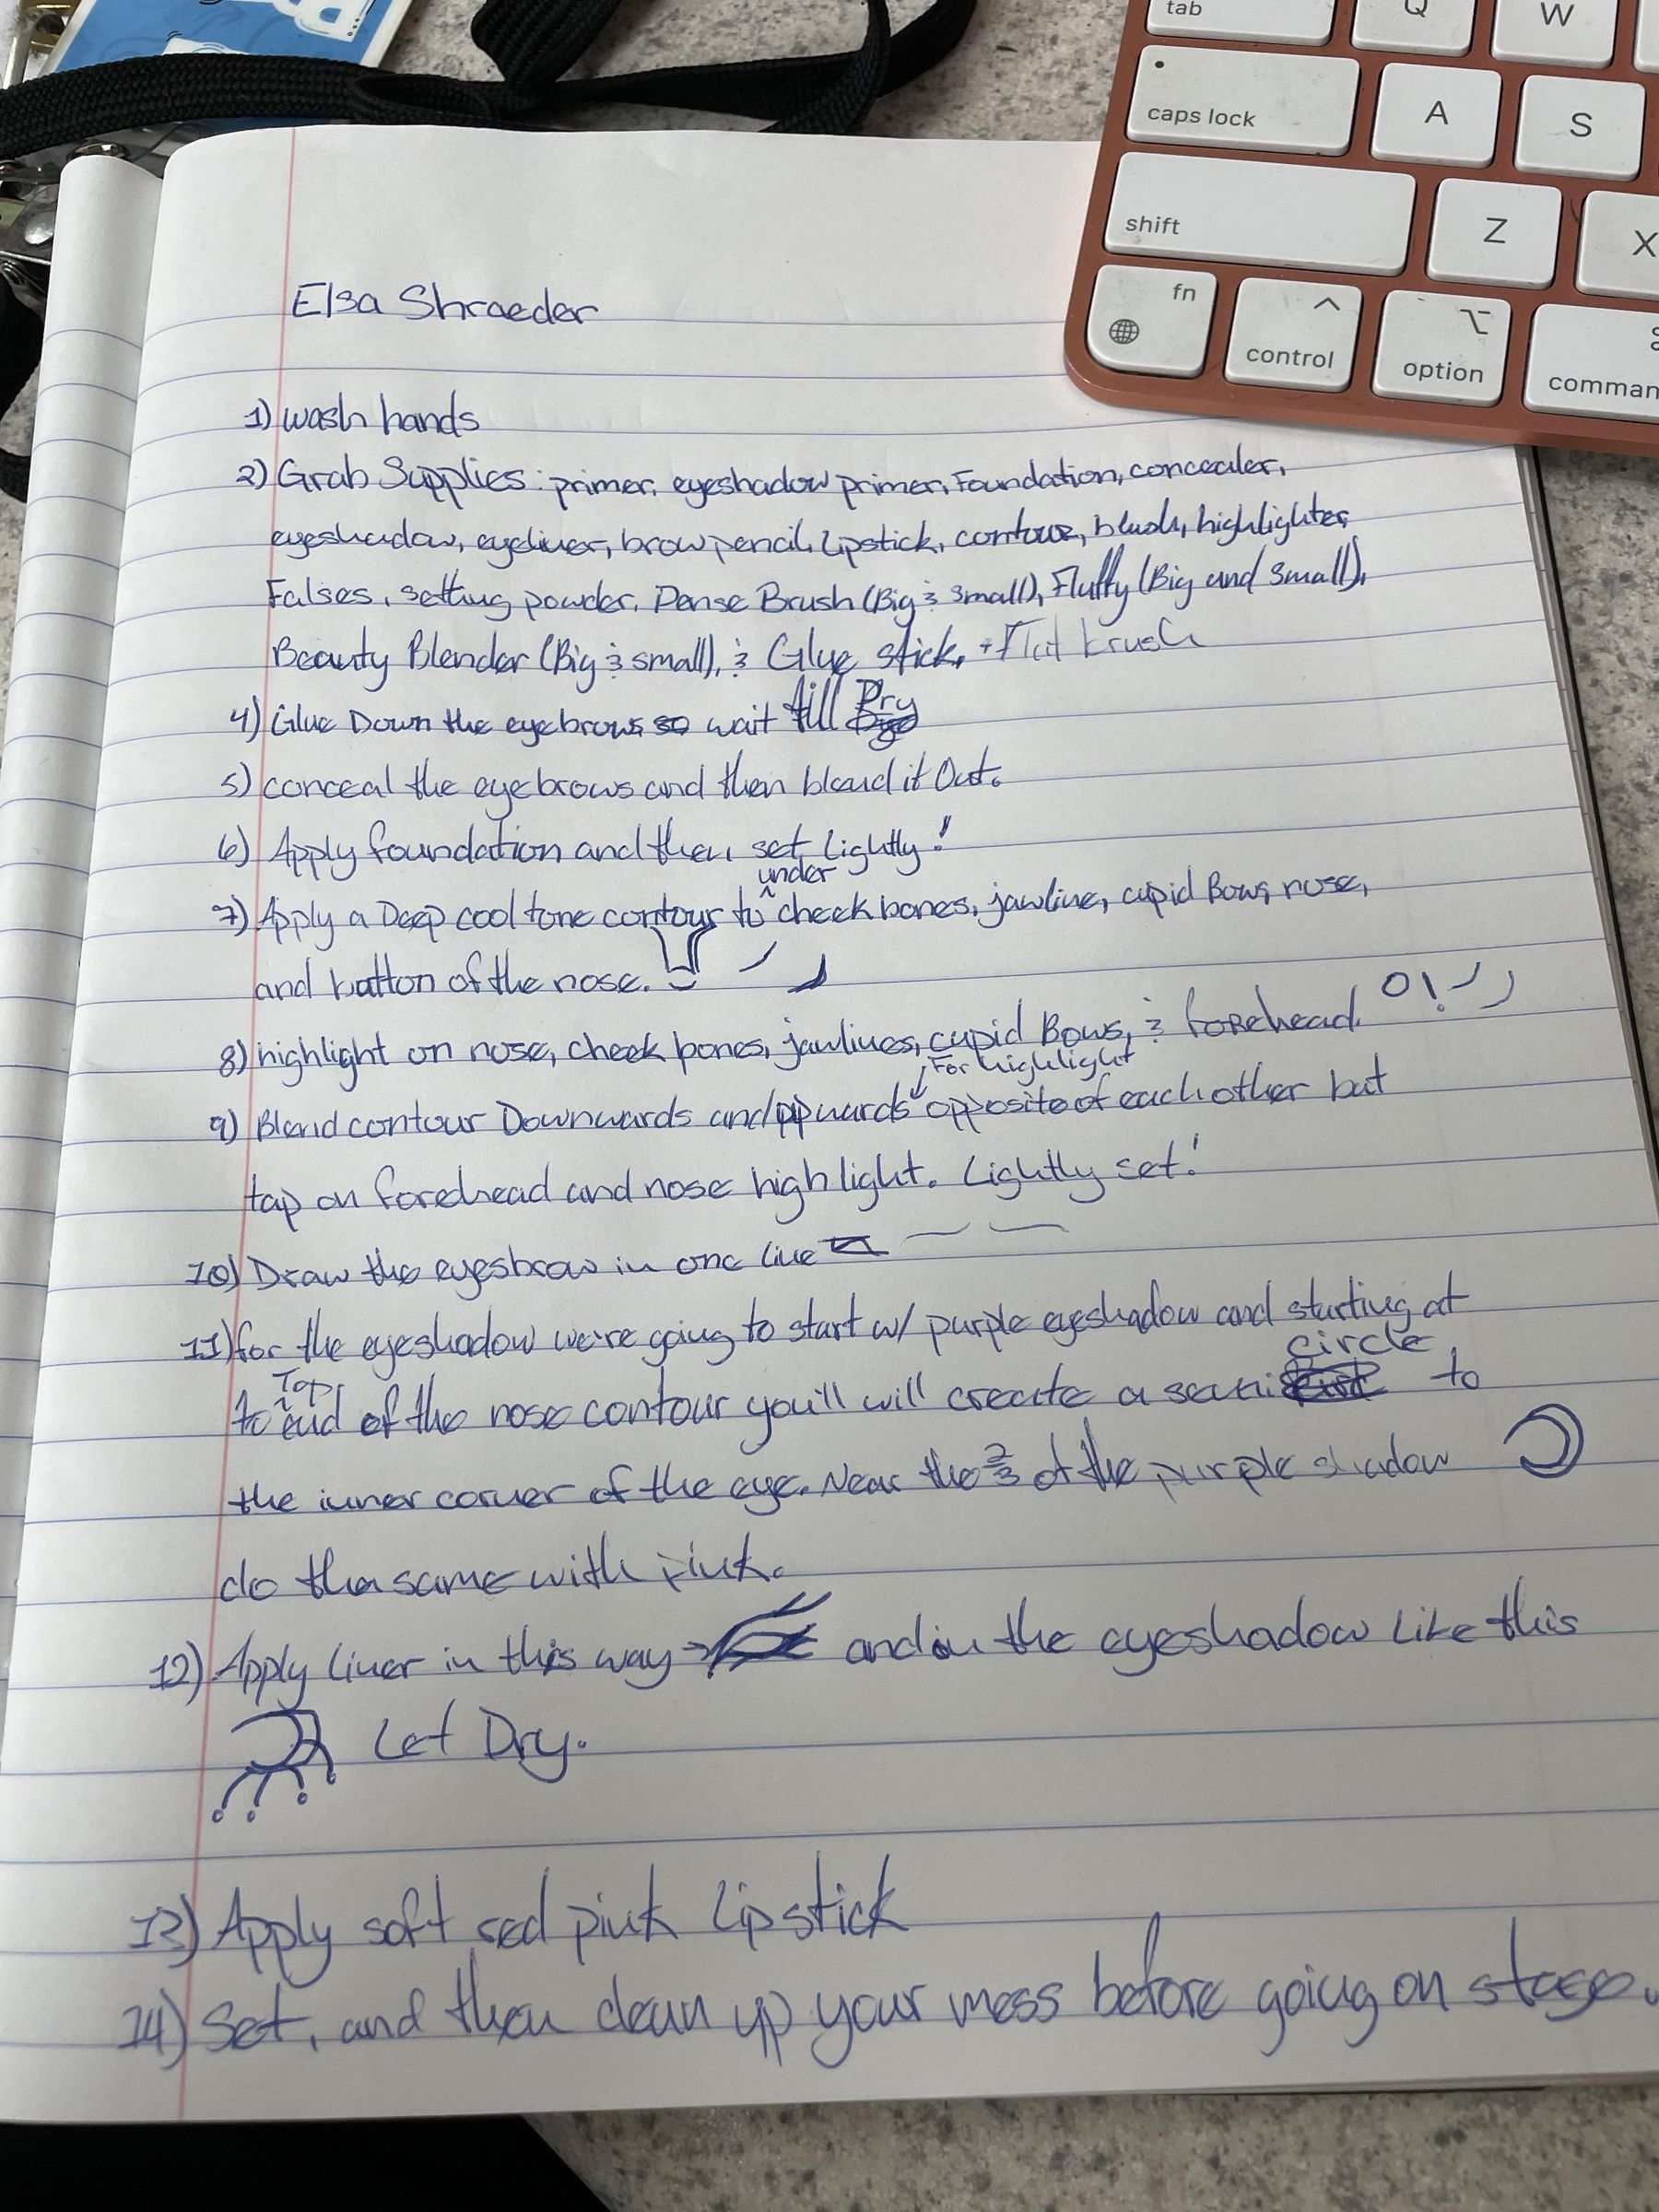 tab
Q
W
caps lock
A
S
shift
Z
X
fn
control
option
comman
Elsa Shraeder
1) wash hands
2) Grab Supplies: primer, eyeshadow primer, Foundation, concealer,
eyeshadow, eyeliner, brow pencil, lipstick, contour, blush, highlighter,
Falses, setting powder, Dense Brush (Big & small), Fluffy (Big and small),
Beauty Blender (Big & small), & Glue stick, + Flat brush
4) Glue Down the eyebrows so wait till Dry
5) conceal the eyebrows and then blend it Out.
6) Apply foundation and then set lightly!
7) Apply a Deep cool tone contour to under cheek bones, jawline, cupid Bows, nose,
and button of the nose.
8) highlight on nose, cheek bones, jawlines, cupid Bows, & forehead.
9) Blend contour Downwards and upwards For highlight opposite of each other but
tap on forehead and nose highlight. Lightly set!
10) Draw the eyesbrow in one line
11) for the eyeshadow we're going to start w/ purple eyeshadow and starting at
to Top end of the nose contour you'll will create a semi circle to
the inner corner of the eye. Near the 2/3 of the purple shadow
do the same with pink.
12) Apply liner in this way → and in the eyeshadow like this
Let Dry.
13) Apply soft red pink lipstick
14) Set, and then clean up your mess before going on stage.